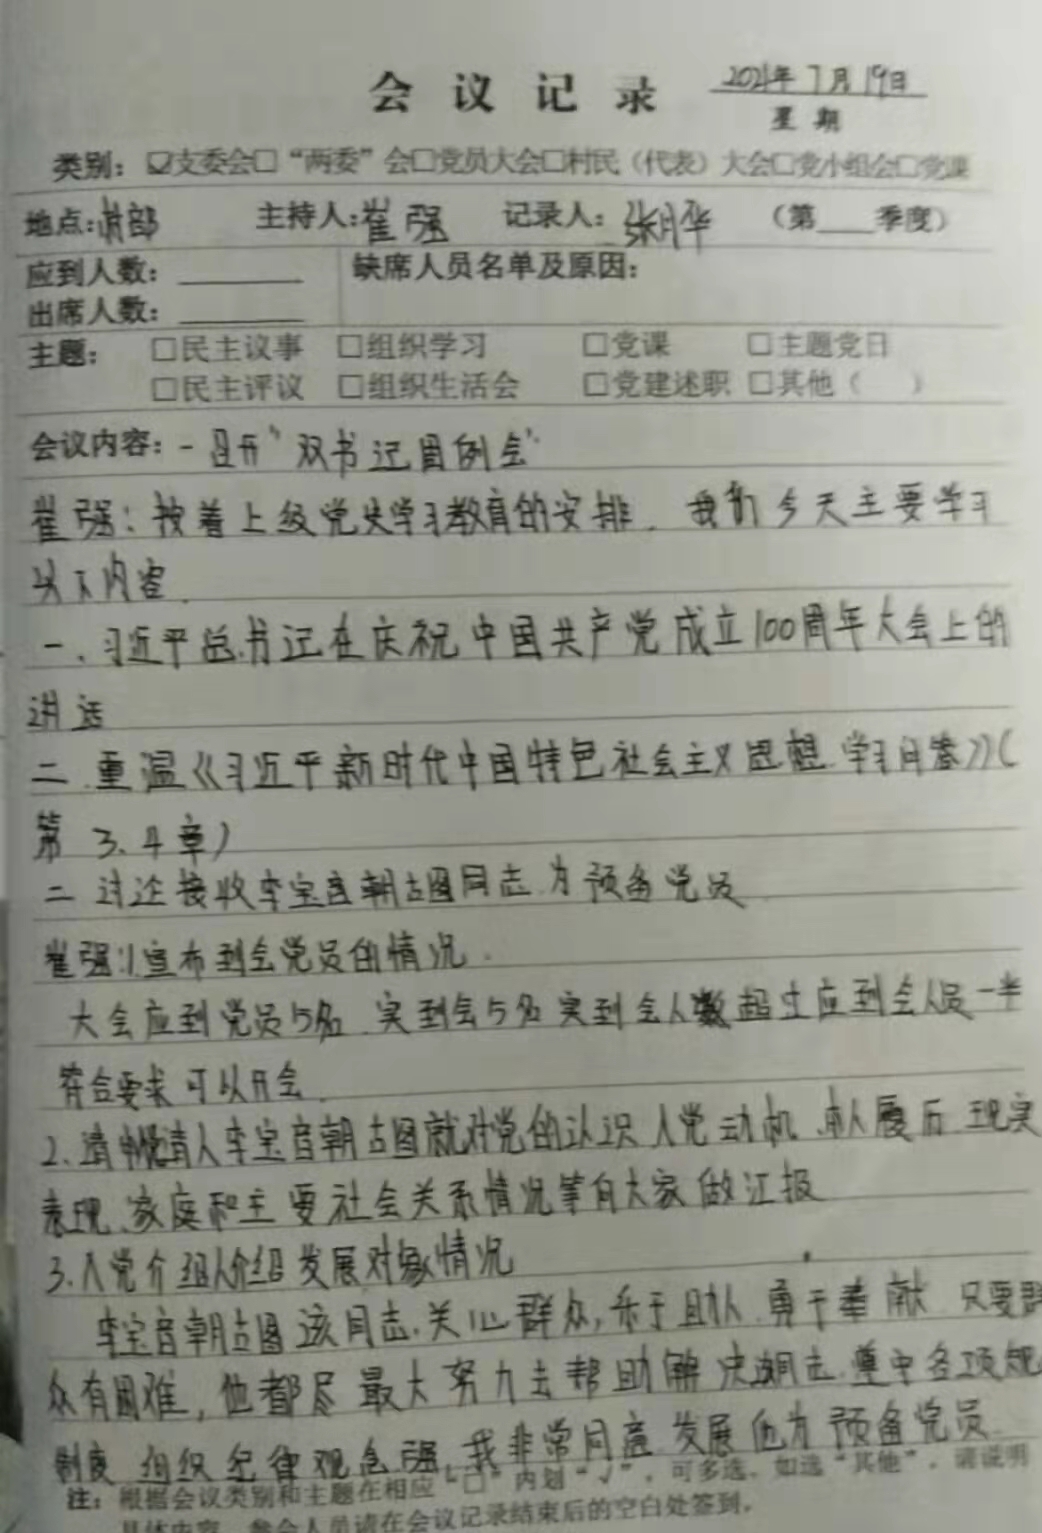 会议记录
2021年7月19日
星期
类别：☑支委会□“两委”会□党员大会□村民（代表）大会□党小组会□党课
地点：村部 主持人：崔强 记录人：张月华 （第____季度）
应到人数：______ 缺席人员名单及原因：
出席人数：______
主题： □民主议事 □组织学习 □党课 □主题党日
□民主评议 □组织生活会 □党建述职 □其他（ ）
会议内容：一召开“双书记周例会”
崔强：按着上级党史学习教育的安排．我们今天主要学习
以下内容．
一、习近平总书记在庆祝中国共产党成立100周年大会上的
讲话
二．重温《习近平新时代中国特色社会主义思想．学习问答》（
第3、4章）
二 讨论接收李宝音朝古图同志为预备党员
崔强：1宣布到会党员的情况．
大会应到党员5名．实到会5名实到会人数超过应到会人员一半
符合要求可以开会．
2、请申请人李宝音朝古图就对党的认识入党动机．本人履历 现实
表现、家庭和主要社会关系情况等向大家做汇报
3．入党介绍人介绍发展对象情况
李宝音朝古图该同志．关心群众，乐于助人．勇于奉献．只要群
众有困难，他都尽最大努力去帮助解决 遵守各项规
制度 组织纪律观念强，我非常同意 发展他为预备党员
注：根据会议类别和主题在相应“□”内划“√”，可多选．如选“其他”，请说明
具体内容．参会人员请在会议记录结束后的空白处签到．